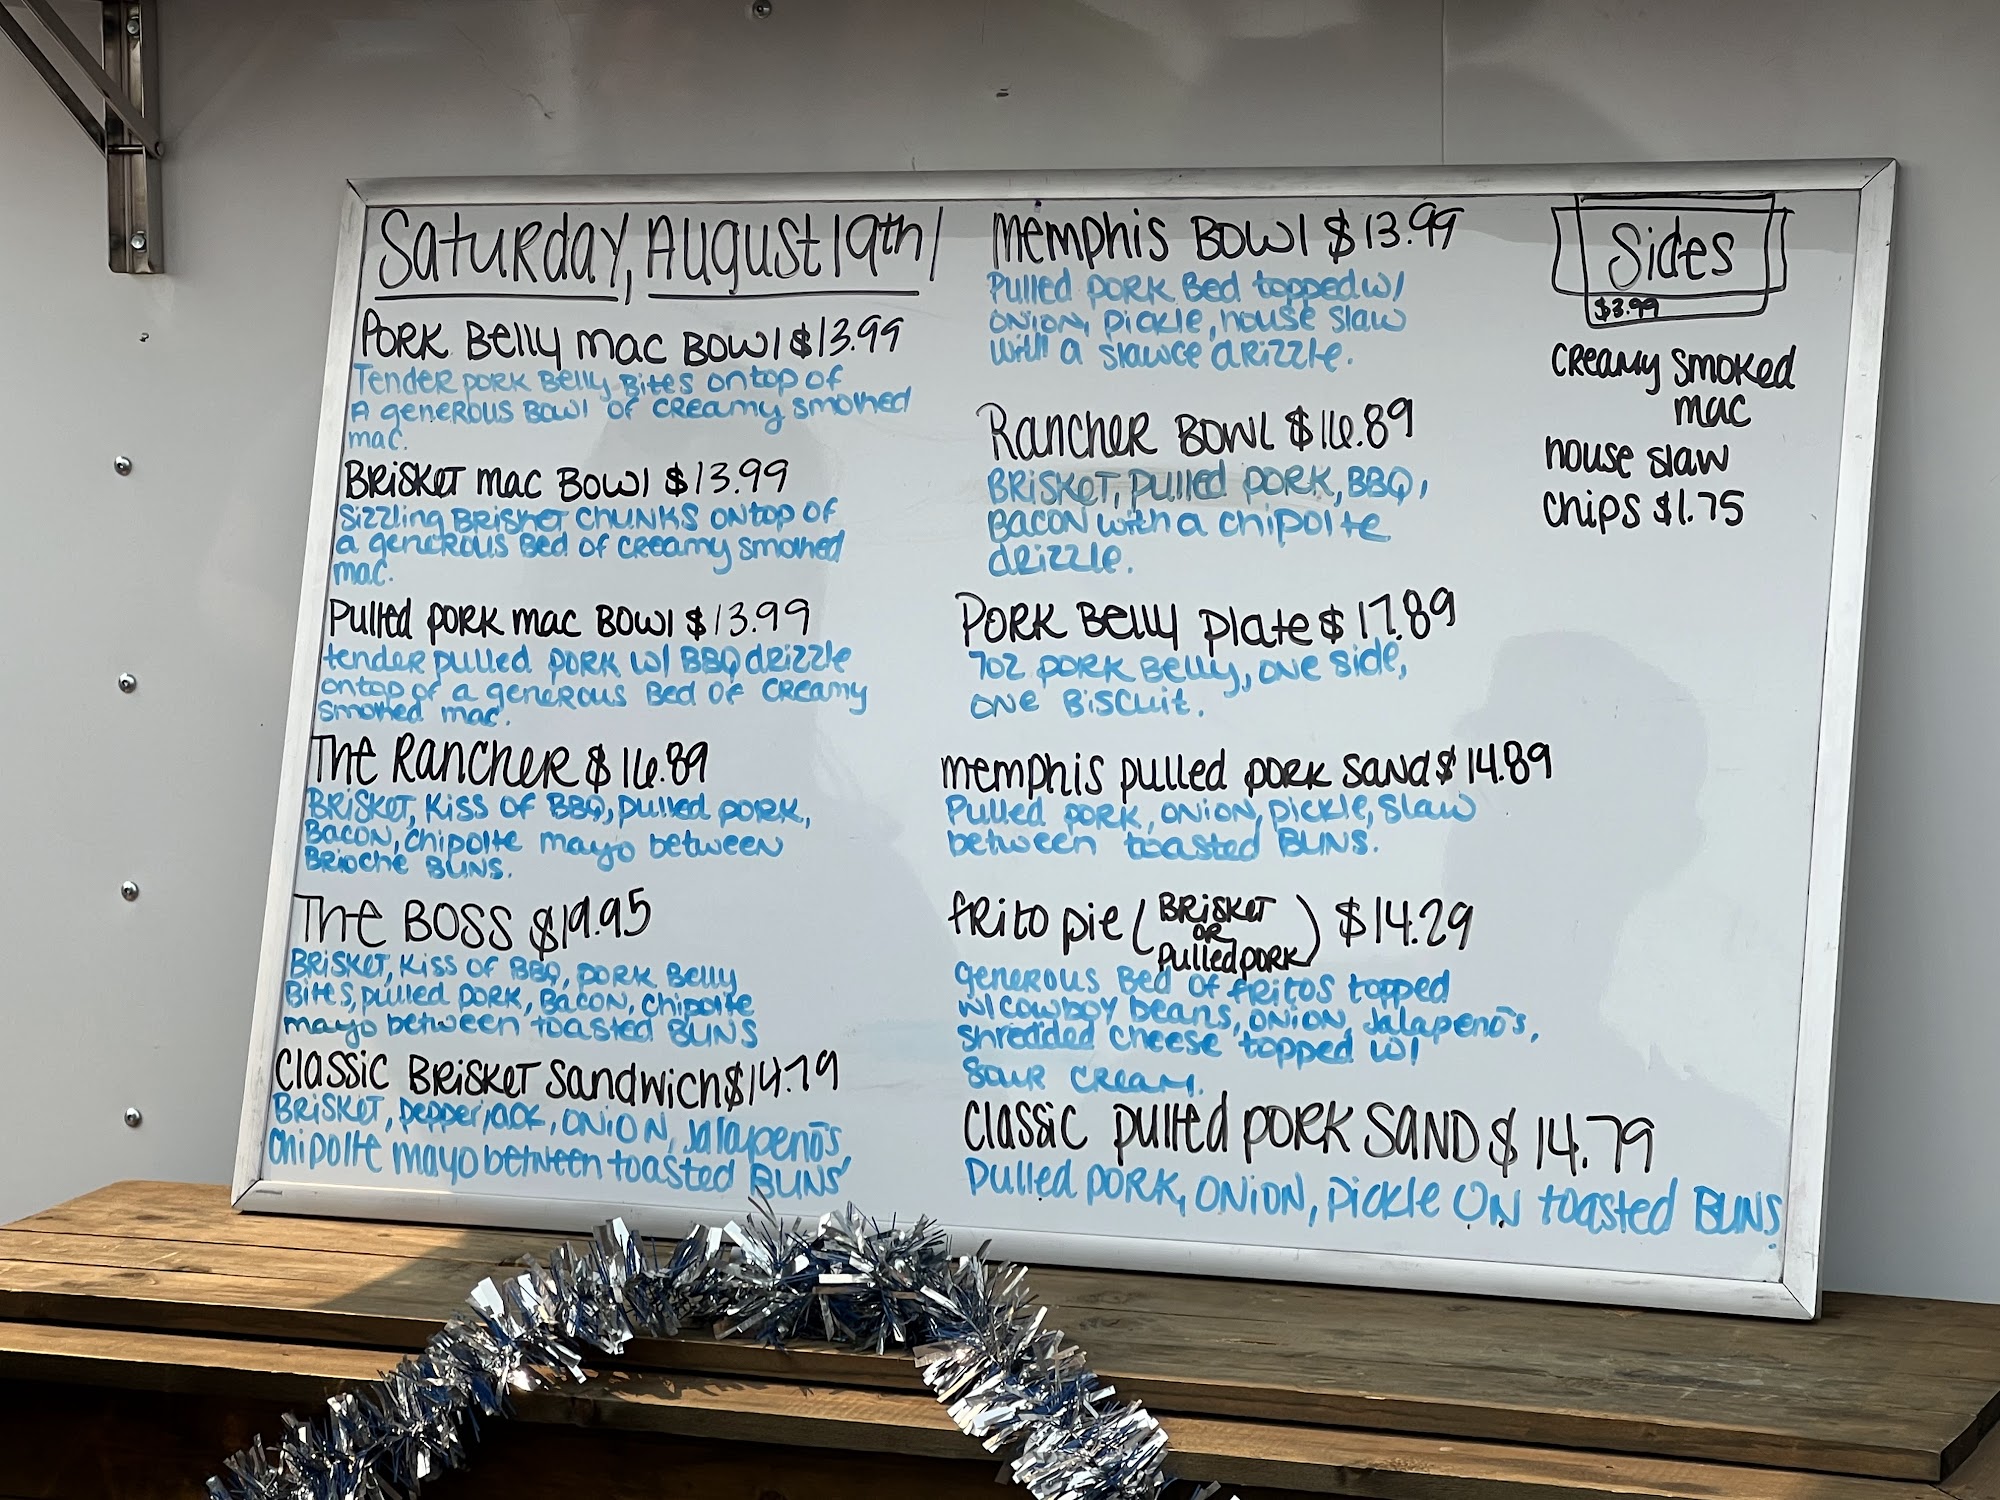 Saturday, August 19th
Pork Belly Mac Bowl $13.99
Tender pork Belly Bites ontop of
A generous Bowl of creamy smoked
mac.
Brisket mac Bowl $13.99
Sizzling Brisket chunks ontop of
a generous Bed of creamy smoked
mac.
Pulled pork mac Bowl $13.99
tender pulled pork w/ BBQ drizzle
ontop of a generous Bed of creamy
smoked mac.
The Rancher $16.89
Brisket, Kiss of BBQ, pulled pork,
Bacon, chipolte mayo between
Brioche Buns.
The BOSS $19.95
Brisket, Kiss of BBQ, pork Belly
Bites, pulled pork, Bacon, chipolte
mayo between toasted Buns
Classic Brisket Sandwich $14.79
Brisket, pepperjack, onion, Jalapeño's,
chipolte mayo between toasted Buns
Memphis Bowl $13.99
Pulled pork Bed topped w/
onion, pickle, house slaw
with a slawce drizzle.
Rancher Bowl $16.89
Brisket, pulled pork, BBQ,
Bacon with a chipolte
drizzle.
Pork Belly plate $17.89
7oz pork Belly, one side,
one Biscuit.
memphis pulled pork sand $14.89
Pulled pork, onion, pickle, slaw
between toasted Buns.
frito pie (Brisket or Pulled pork) $14.29
generous Bed of fritos topped
w/ cowboy beans, onion, Jalapeño's,
shredded cheese topped w/
sour cream.
Classic pulled pork SAND $14.79
Pulled pork, onion, pickle on toasted Buns.
Sides
$3.99
creamy smoked
mac
house slaw
chips $1.75